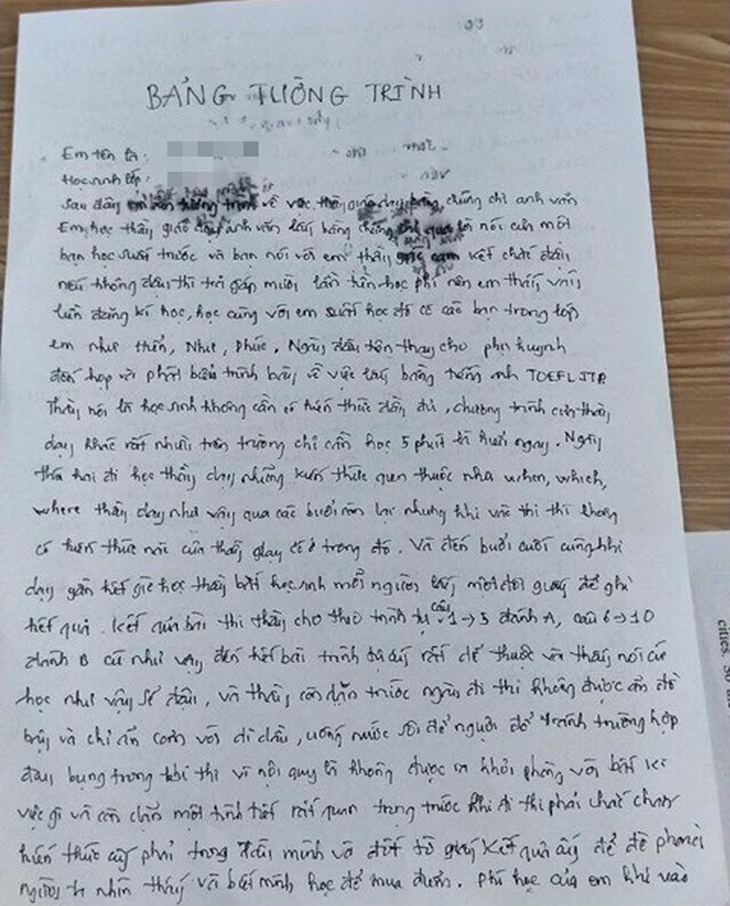 BẢNG TƯỜNG TRÌNH
Em tên là:
Học sinh lớp:
Sau đây em xin tường trình về việc thầy giáo dạy bằng chứng chỉ anh văn
Em học thầy giáo dạy anh văn lấy bằng chứng chỉ qua lời nói của một
bạn học suất trước và bạn nói với em thầy cam kết chắc đậu
nếu không đậu thì trả gấp mười lần tiền học phí nên em thấy vậy
liền đăng kí học, học cùng với em suất học đó có các bạn trong lớp
em như Như, Phúc. Ngày đầu tiên thay cho phụ huynh
đến họp và phát biểu trình bày về việc lấy bằng tiếng anh TOEFL ITP
Thầy nói là học sinh không cần có kiến thức đầy đủ, chương trình của thầy
dạy khác rất nhiều trên trường chỉ cần học 5 phút là hiểu ngay. Ngày
thứ hai đi học thầy dạy những kiến thức quen thuộc như when, which,
where thầy dạy như vậy qua các buổi còn lại nhưng khi vào thi thì không
có kiến thức nào của thầy dạy có ở trong đó. Và đến buổi cuối cùng khi
dạy gần hết giờ học thầy bắt học sinh mỗi người lấy một đôi giấy để ghi
kết quả. Kết quả bài thi thầy cho theo trình tự câu 1→5 đánh A, câu 6→10
đánh B cứ như vậy đến hết bài trình tự ấy rất dễ thuộc và thầy nói cứ
học như vậy sẽ đậu, và thầy căn dặn trước ngày đi thi không được ăn đồ
bậy và chỉ ăn cơm với dưa, uống nước sôi để nguội để tránh trường hợp
đau bụng trong khi thi vì nội quy là không được ra khỏi phòng với bất kì
việc gì và căn dặn một tình tiết rất quan trọng trước khi đi thi phải chắc chắn
kiến thức ấy phải trong đầu mình và đốt tờ giấy kết quả ấy để đề phòng
người ta nhìn thấy và biết mình học để mua điểm. Phí học của em khi vào